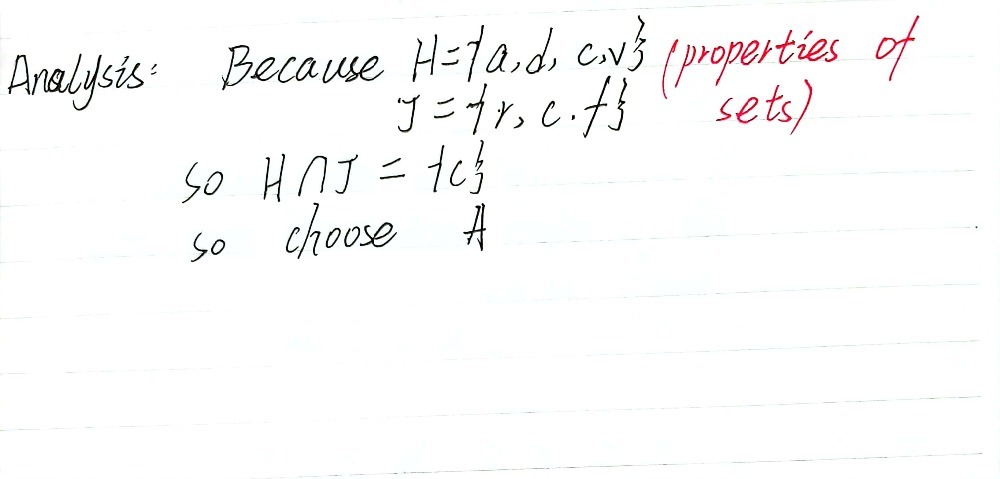 Analysis: Because H={a,d, c,v} (properties of
J={r, c.f} sets)
so H∩J = {c}
so choose A